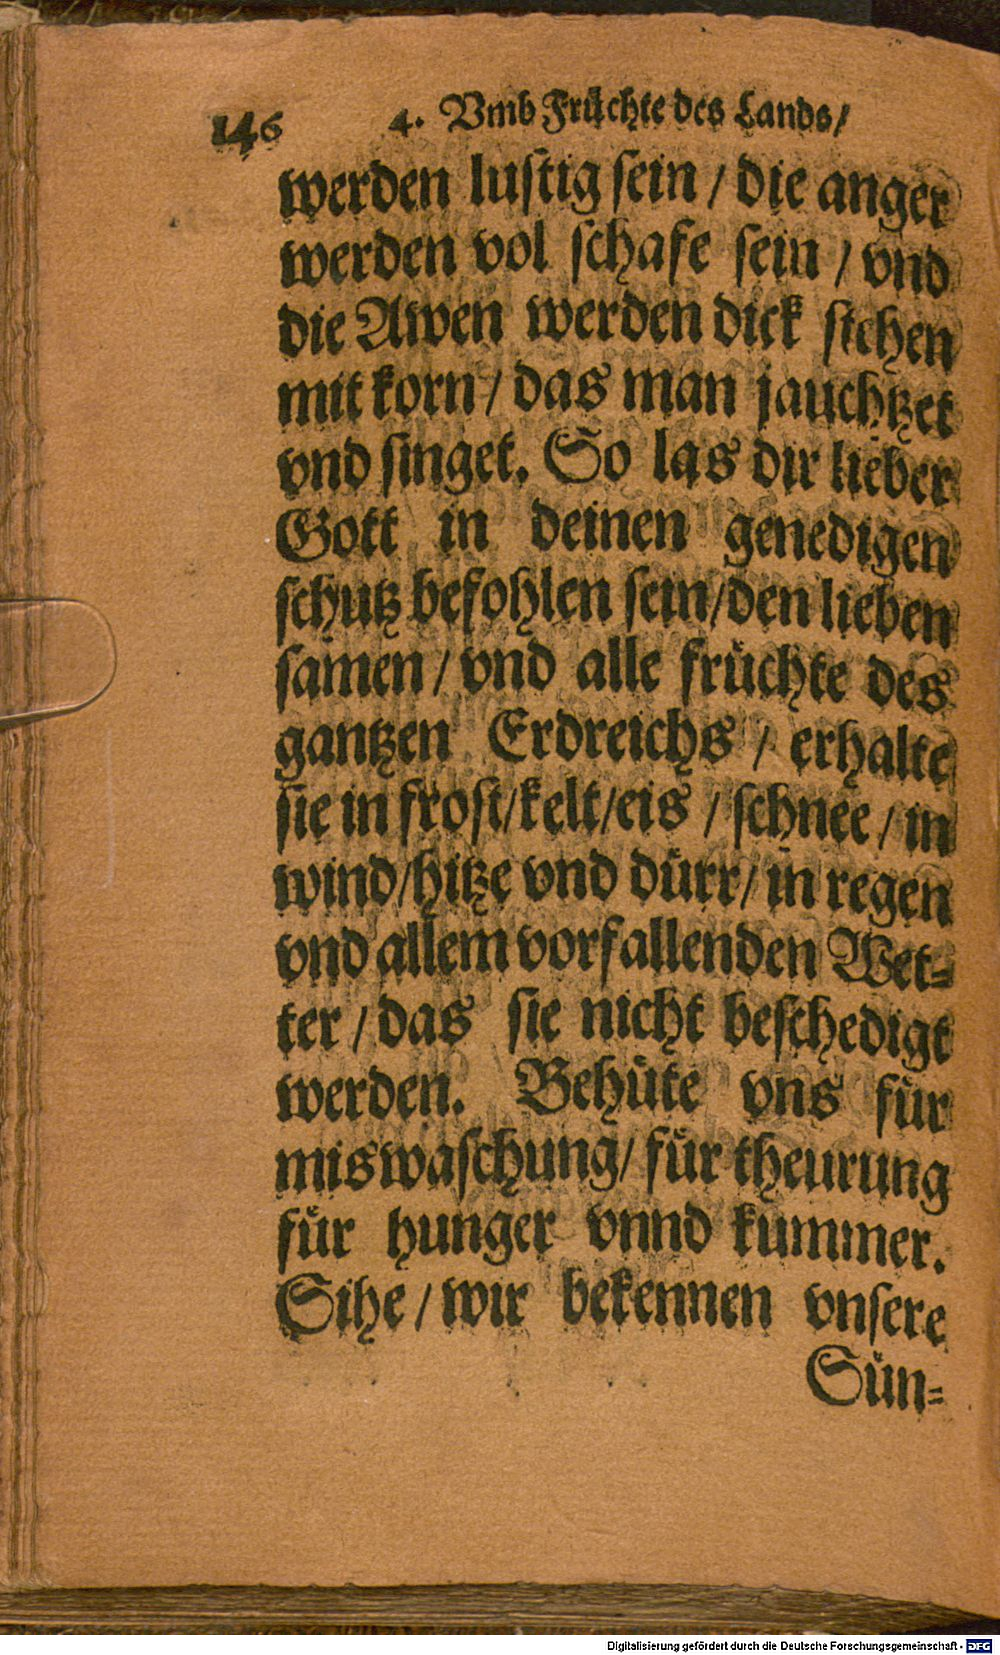 146 4. Vmb Früchte des Lands/
werden lustig sein / die anger
werden vol schafe sein / vnd
die Awen werden dick stehen
mit korn / das man jauchtzet
vnd singet. So las dir lieber
Gott in deinen genedigen
schutz befohlen sein/den lieben
samen / vnd alle früchte des
gantzen Erdreichs / erhalte
sie in frost/kelt/eis / schnee / in
wind/hitze vnd dürr/ in regen
vnd allem vorfallenden Wet-
ter / das sie nicht beschedigt
werden. Behüte vns für
miswaschung/ für theurung
für hunger vnnd kummer.
Sihe / wir bekennen vnsere
Sün-
Digitalisierung gefördert durch die Deutsche Forschungsgemeinschaft - DFG